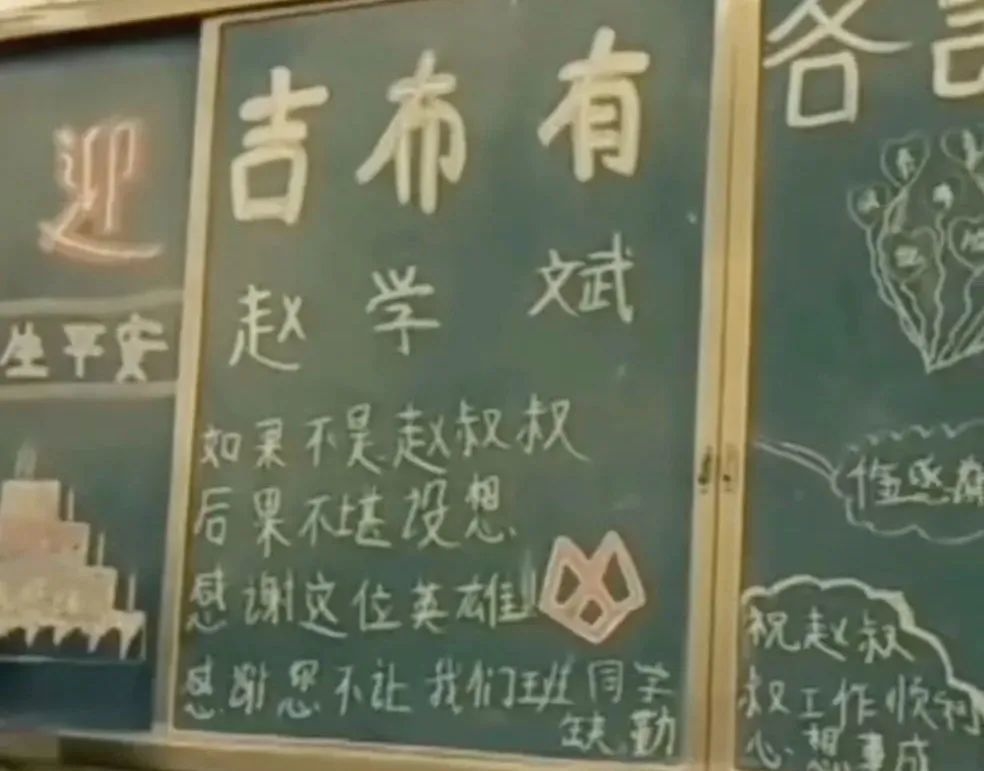 迎
生平安
吉布有
赵学斌
如果不是赵叔叔
后果不堪设想
感谢这位英雄!
感谢恩不让我们班同学
缺勤
各
祝赵叔
叔工作顺利
心想事成